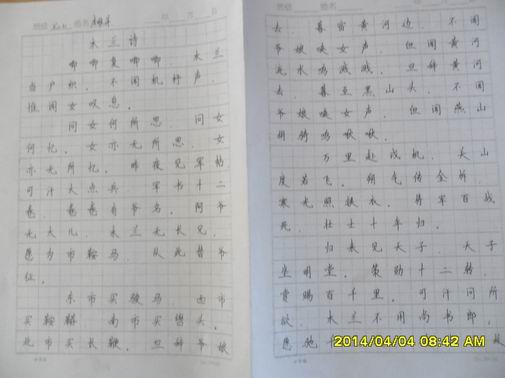 木兰诗
唧唧复唧唧，木兰
当户织，不闻机杼声，
惟闻女叹息。
问女何所思，问女
何忆。女亦无所思，女
亦无所忆。昨夜见军帖，
可汗大点兵，军书十二
卷，卷卷有爷名。阿爷
无大儿，木兰无长兄，
愿为市鞍马，从此替爷
征。
东市买骏马，西市
买鞍鞯，南市买辔头，
北市买长鞭。旦辞爷娘
去，暮宿黄河边，不闻
爷娘唤女声，但闻黄河
流水鸣溅溅。旦辞黄河
去，暮至黑山头，不闻
爷娘唤女声，但闻燕山
胡骑鸣啾啾。
万里赴戎机，关山
度若飞。朔气传金柝，
寒光照铁衣。将军百战
死，壮士十年归。
归来见天子，天子
坐明堂。策勋十二转，
赏赐百千里。可汗问所
欲，木兰不用尚书郎，
愿驰
2014/04/04 08:42 AM